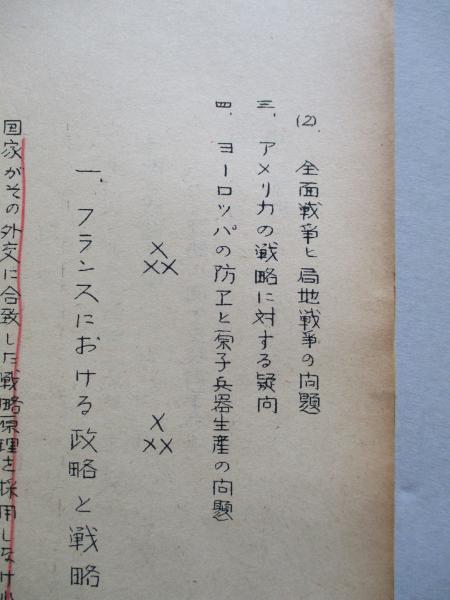 (2). 全面戦争と局地戦争の问題
三. アメリカの戦略に対する疑问
四. ヨーロッパの防卫と原子兵器生産の问題
× ×× × ××
一. フランスにおける政略と戦略
国家がその外交に合致した戦略原理を採用しなけれ